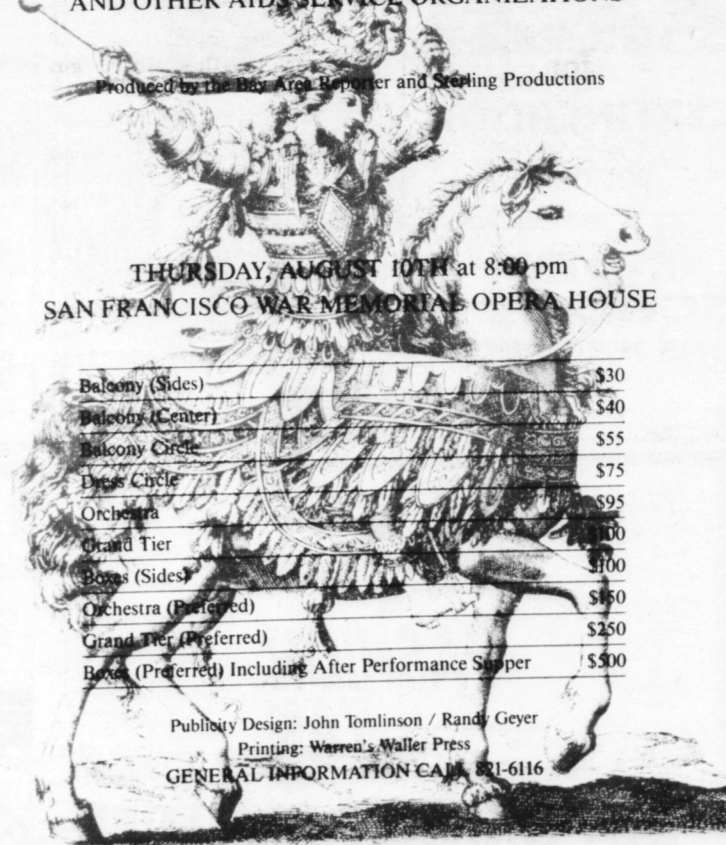 AND OTHER AIDS SERVICE ORGANIZATIONS
Produced by the Bay Area Reporter and Sterling Productions
THURSDAY, AUGUST 10TH at 8:00 pm
SAN FRANCISCO WAR MEMORIAL OPERA HOUSE
Balcony (Sides) $30
Balcony (Center) $40
Balcony Circle $55
Dress Circle $75
Orchestra $95
Grand Tier $100
Boxes (Sides) $100
Orchestra (Preferred) $150
Grand Tier (Preferred) $250
Boxes (Preferred) Including After Performance Supper $500
Publicity Design: John Tomlinson / Randy Geyer
Printing: Warren's Waller Press
GENERAL INFORMATION CALL 821-6116